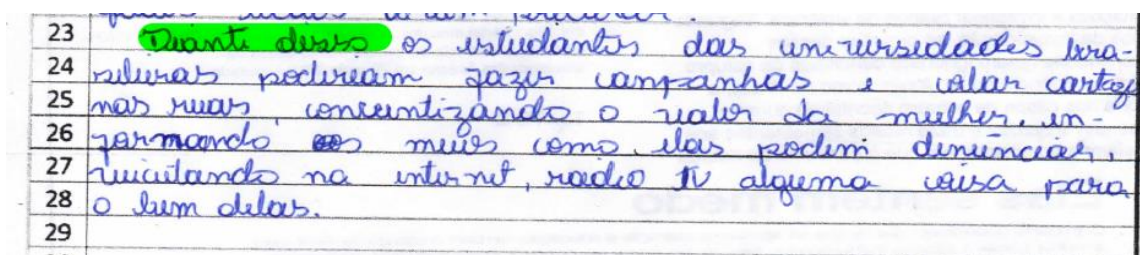 23 Diante disso os estudantes das universidades bra-
24 sileiras poderiam fazer campanhas e colar cartaze
25 nas ruas, conscientizando o valor da mulher, in-
26 formando os meios como elas podem denunciar,
27 na internet, radio TV alguma coisa para
28 o bem delas.
29